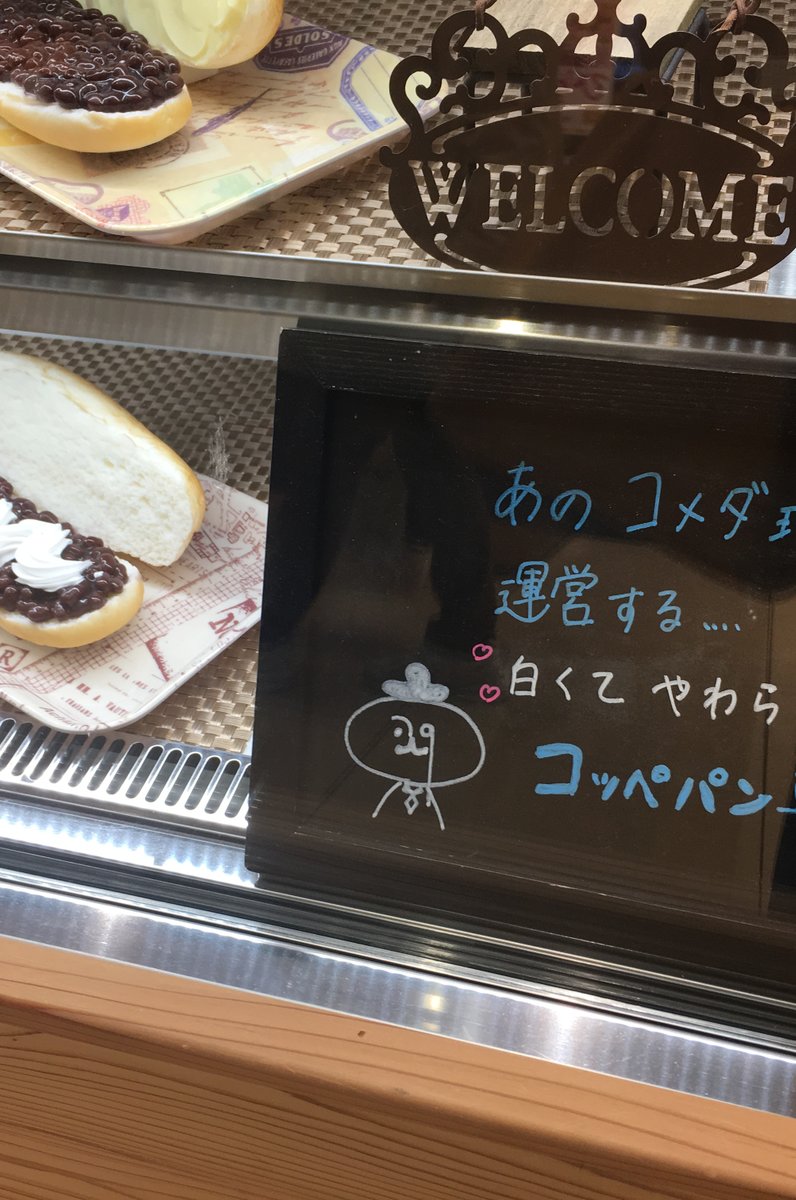 SOLDES
WELCOME
あの コメダ
運営する....
白くて やわら
コッペパン